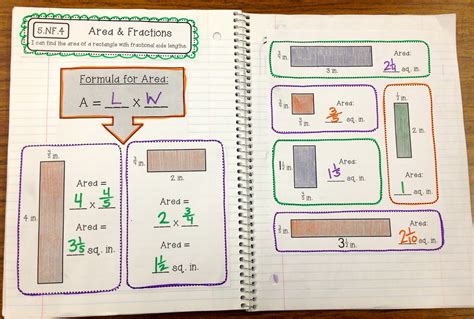 5.NF.4
Area & Fractions
I can find the area of a rectangle with fractional side lengths.
Formula for Area:
A = L x W
4 in.
Area =
4 x 4/5
Area =
3 1/5 sq. in.
3/4 in.
2 in.
Area =
2 x 3/4
Area =
1 1/2 sq. in.
3 in.
Area:
2 1/4 sq. in.
Area:
sq. in.
2 in.
Area:
1
sq. in.
in.
Area:
1 1/5 sq. in.
in.
3 1/2 in.
Area:
2 1/10 sq. in.